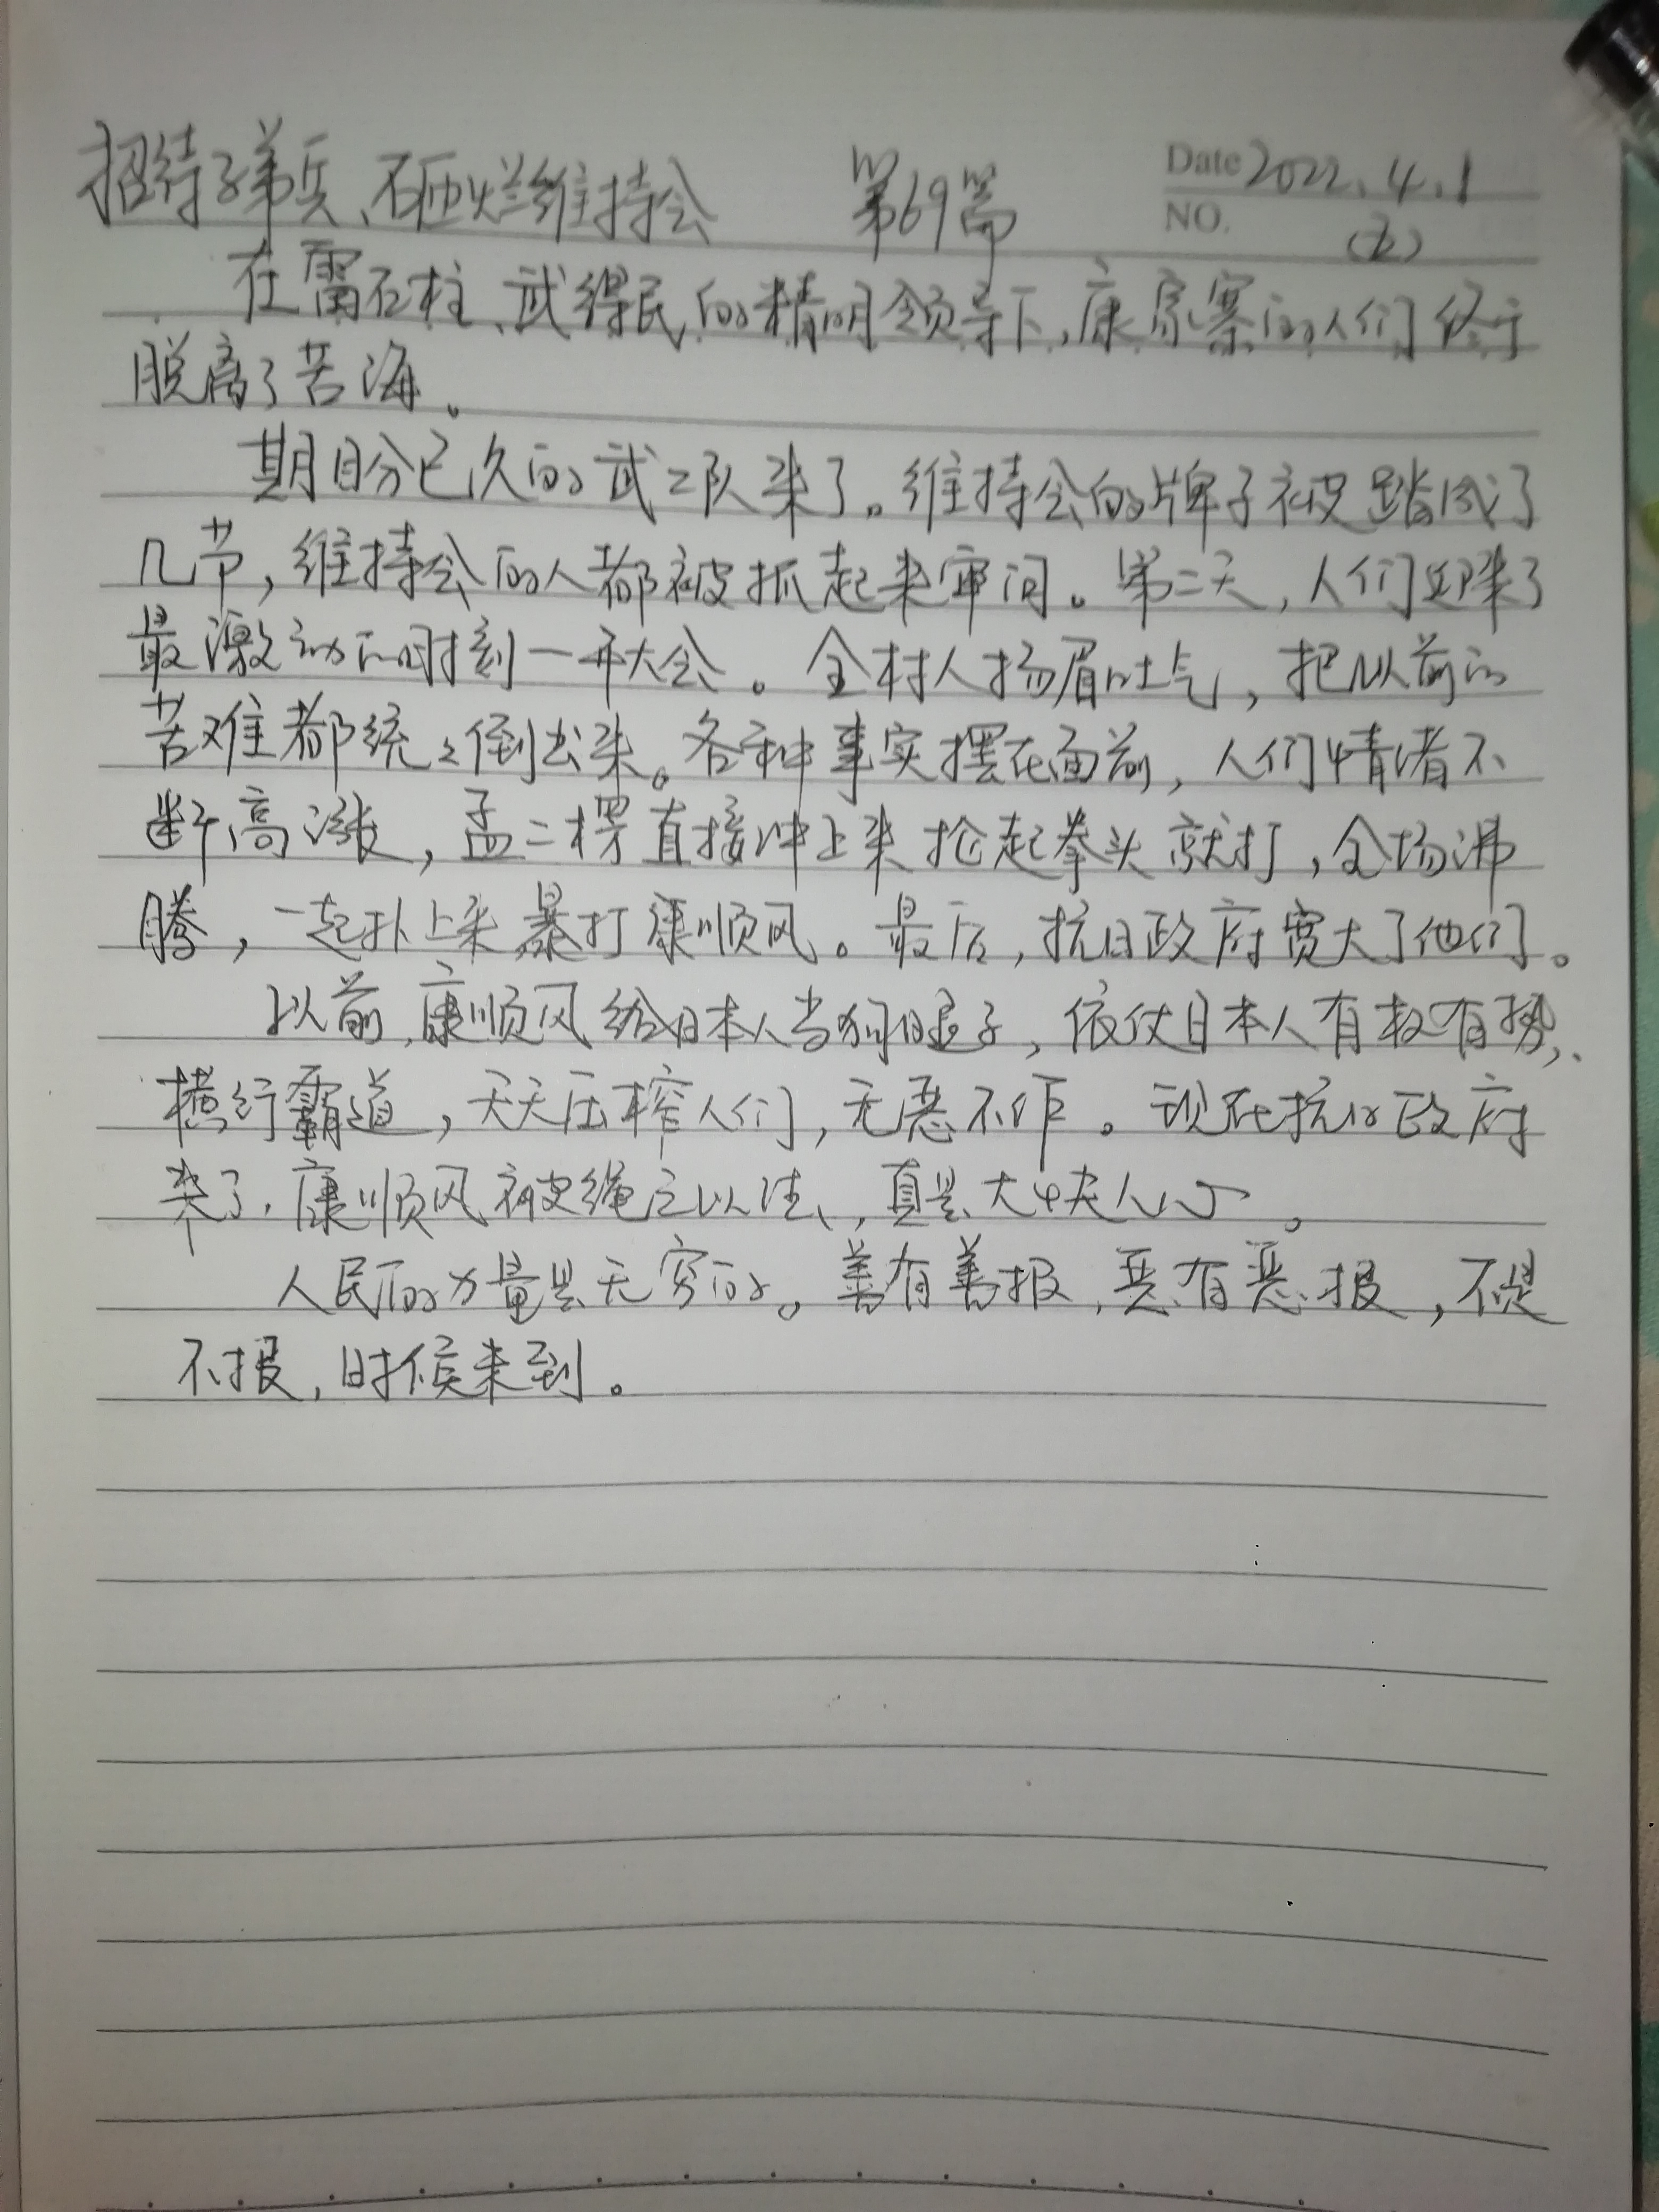 招待子弟兵、砸烂维持会 第69篇 Date 2022.4.1
NO. (五)
在雷石柱、武得民的精明领导下,康家寨的人们终于
脱离了苦海。
期盼已久的武工队来了。维持会的牌子被踏成了
几节,维持会的人都被抓起来审问。第二天,人们迎来了
最激动的时刻一开大会。全村人扬眉吐气,把以前的
苦难都统统倒出来。各种事实摆在面前,人们情绪不
断高涨,孟二楞直接冲上来抡起拳头就打,全场沸
腾,一起扑上来暴打康顺风。最后,抗日政府宽大了他们。
以前,康顺风给日本人当狗腿子,依仗日本人有权有势,
横行霸道,天天压榨人们,无恶不作。现在抗日政府
来了,康顺风被绳之以法,真是大快人心。
人民的力量是无穷的。善有善报,恶有恶报,不是
不报,时候未到。